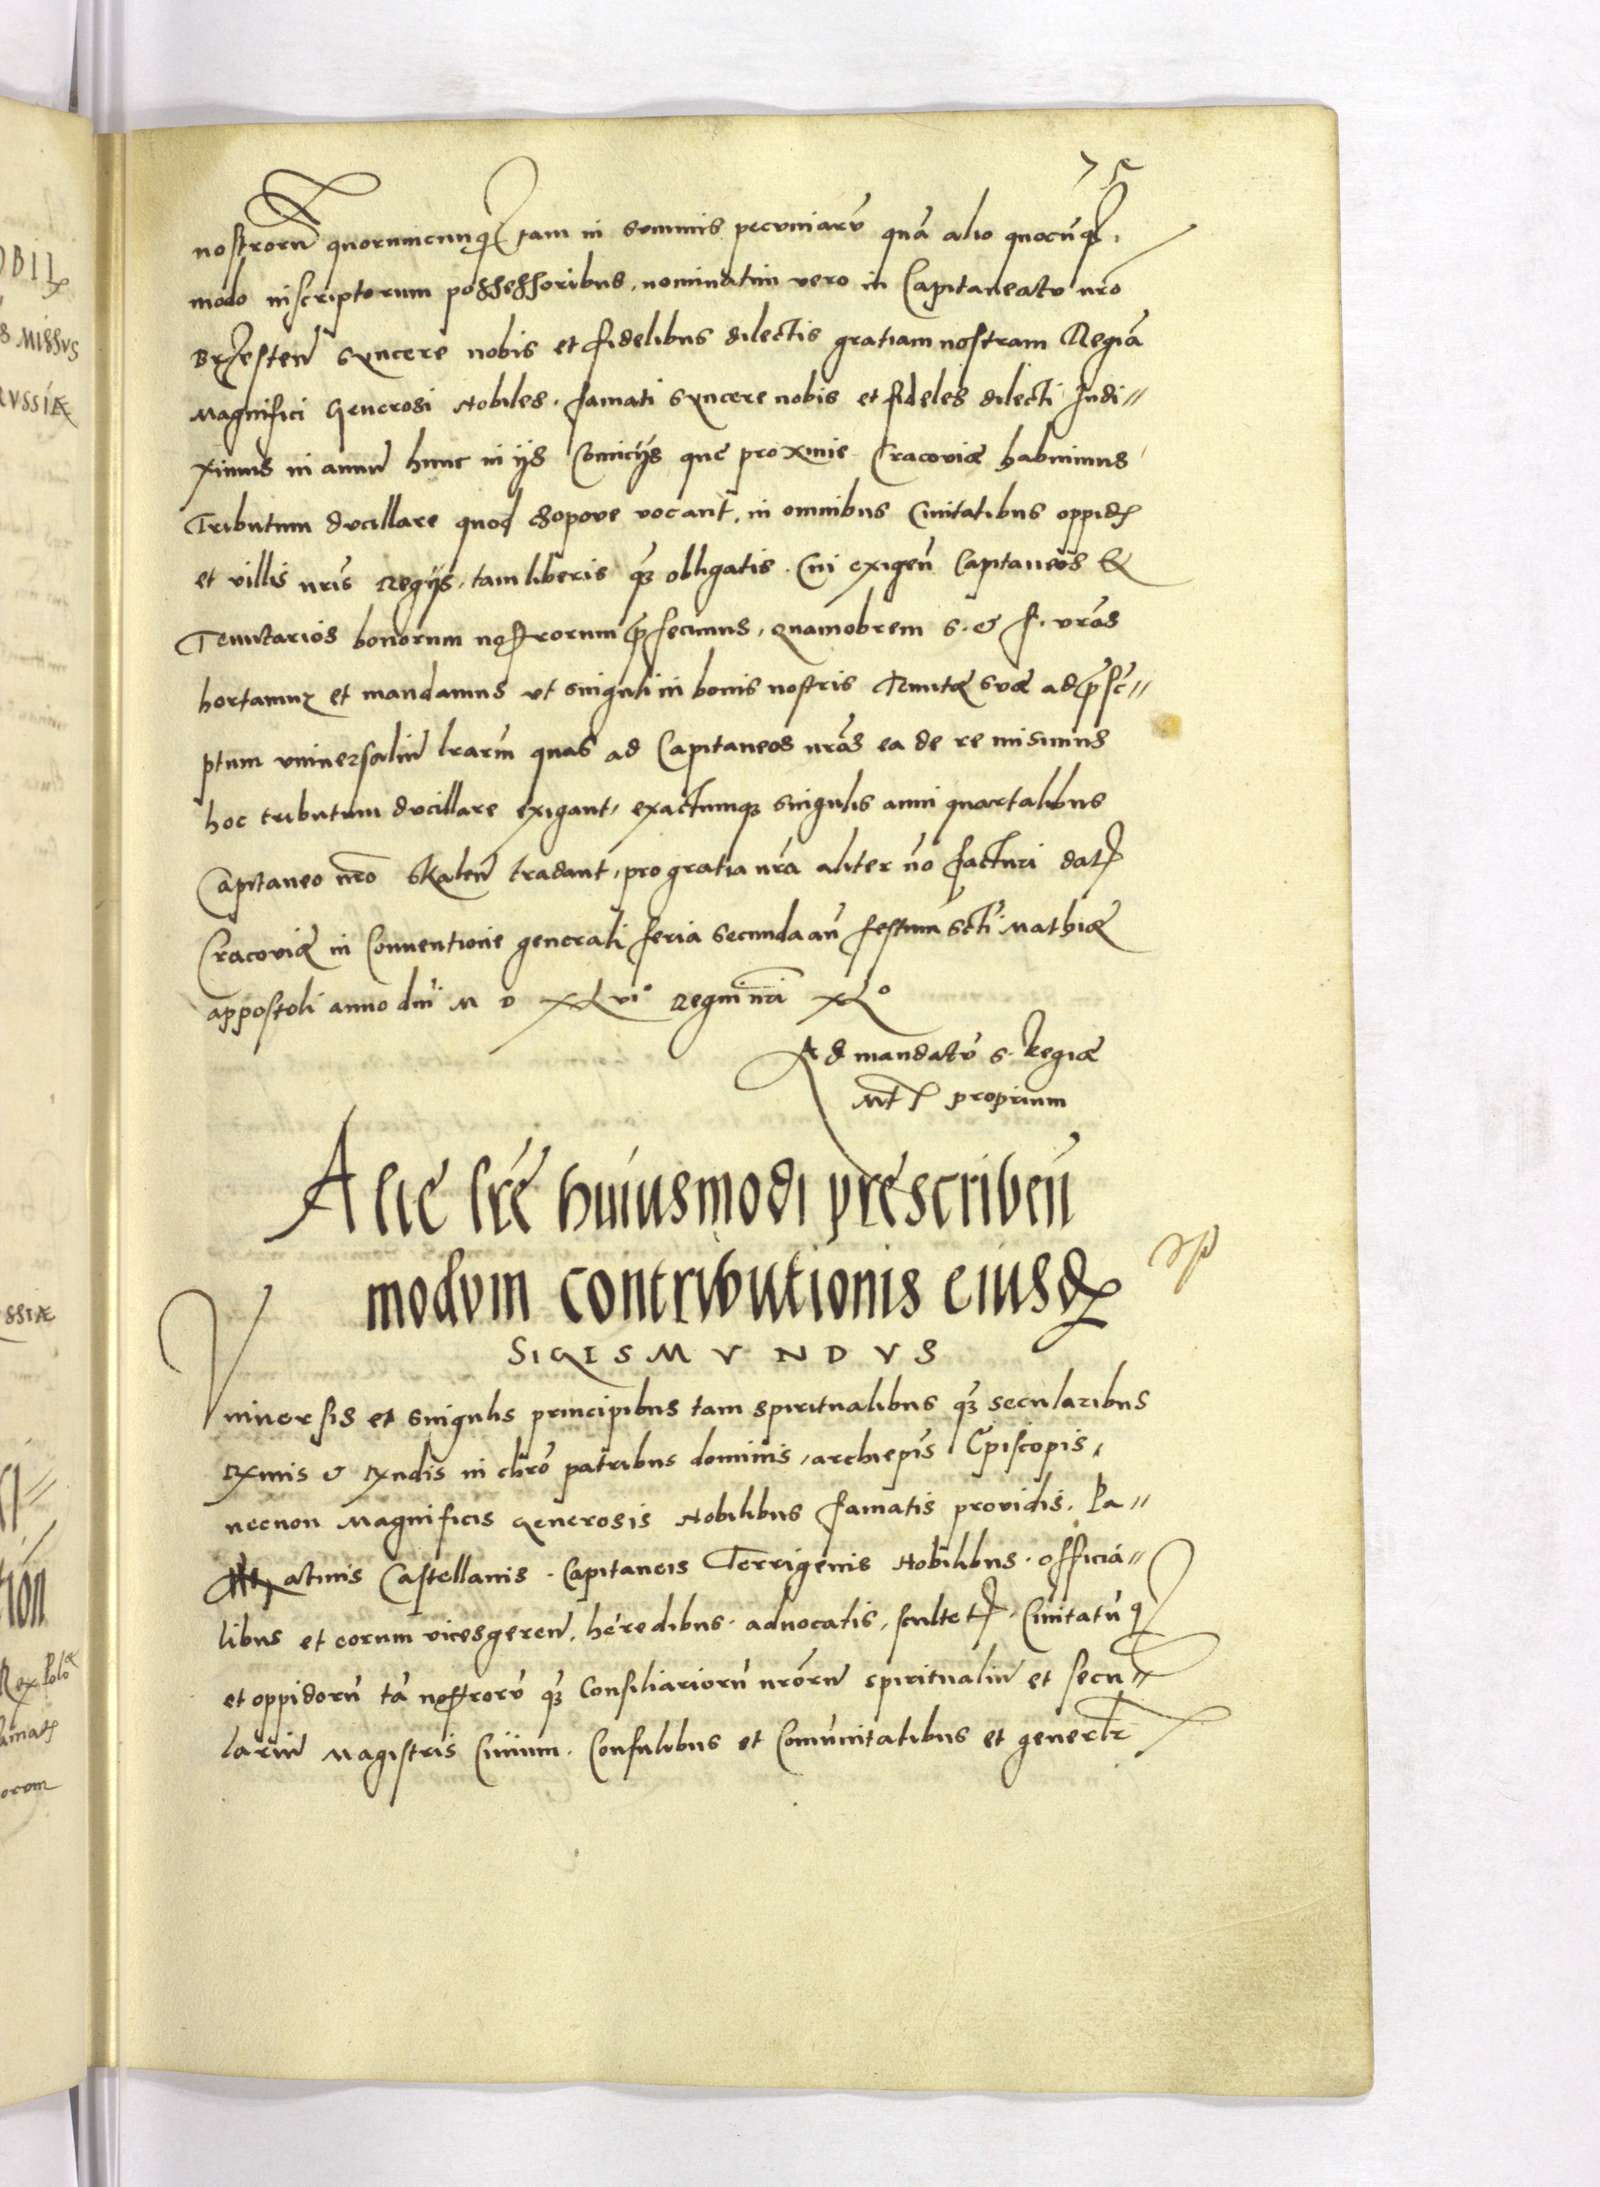 75
nostrorū quorumcunq tam in summis pecuniarū quā alio quocūq
modo inscriptorum possessoribus, nominatim vero in Capitaneatu nr̄o
Brzesteñ syncere nobis et fidelibus dilectis gratiam nostram Regiā
Magnifici Generosi Nobiles. famati syncere nobis et fideles dilecti Indi//
ximus in annū hunc in ijs Comicijs que proxime Cracoviæ habuimus
Tributum ducillare quod czopove vocant, in omnibus Ciuitatibus oppidꝭ
et villis nr̄is Regijs, tam liberis q̄ȝ obligatis. Cui exigeñ Capitaneos &
Tenutarios bonorum nostrorum p̄fecimus, quamobrem S. & f. vr̄as
hortamur et mandamus vt singuli in bonis nostris Tenutæ suæ ad p̄sc//
ptum vniuersaliū lr̄arū quas ad Capitaneos nr̄os ea de re misimus
hoc tributum ducillare exigant, exactumqȝ singulis anni quartalibus
Capitaneo nr̄o Skaleñ tradant, pro gratia nr̄a aliter nō facturi datꝭ
Cracoviæ in Conuentione generali feria secunda añ festum sc̄ti Mathiæ
appostoli anno dn̄i M D XLvi° Regni nr̄i XL°
Ad mandatū S. Regiæ
Mtꝭ proprium
Alie lr̄e huiusmodi prescribeñ
modvm contributionis eiusdꝭ
SIGISMVNDVS
Vniuersis et singulis principibus tam spiritualibus q̄ȝ secularibus
Rx̄mis & Rx̄ndis in chrō patribus dominis, archiep̄is Ep̄iscopis,
necnon Magnificis Generosis Nobilibus famatis providis. Pa//
atinis Castellanis. Capitaneis Terrigenis Nobilibus. officia//
libus et eorum vicesgereñ, heredibus. aduocatis, scultetꝭ. Ciuitatū q
et oppidorū tā nostrorū q̄ȝ Consiliariorū nr̄orū spiritualiū et secu//
lariū Magistris Ciuium. Consulibus et Comūnitatibus et generlr̄